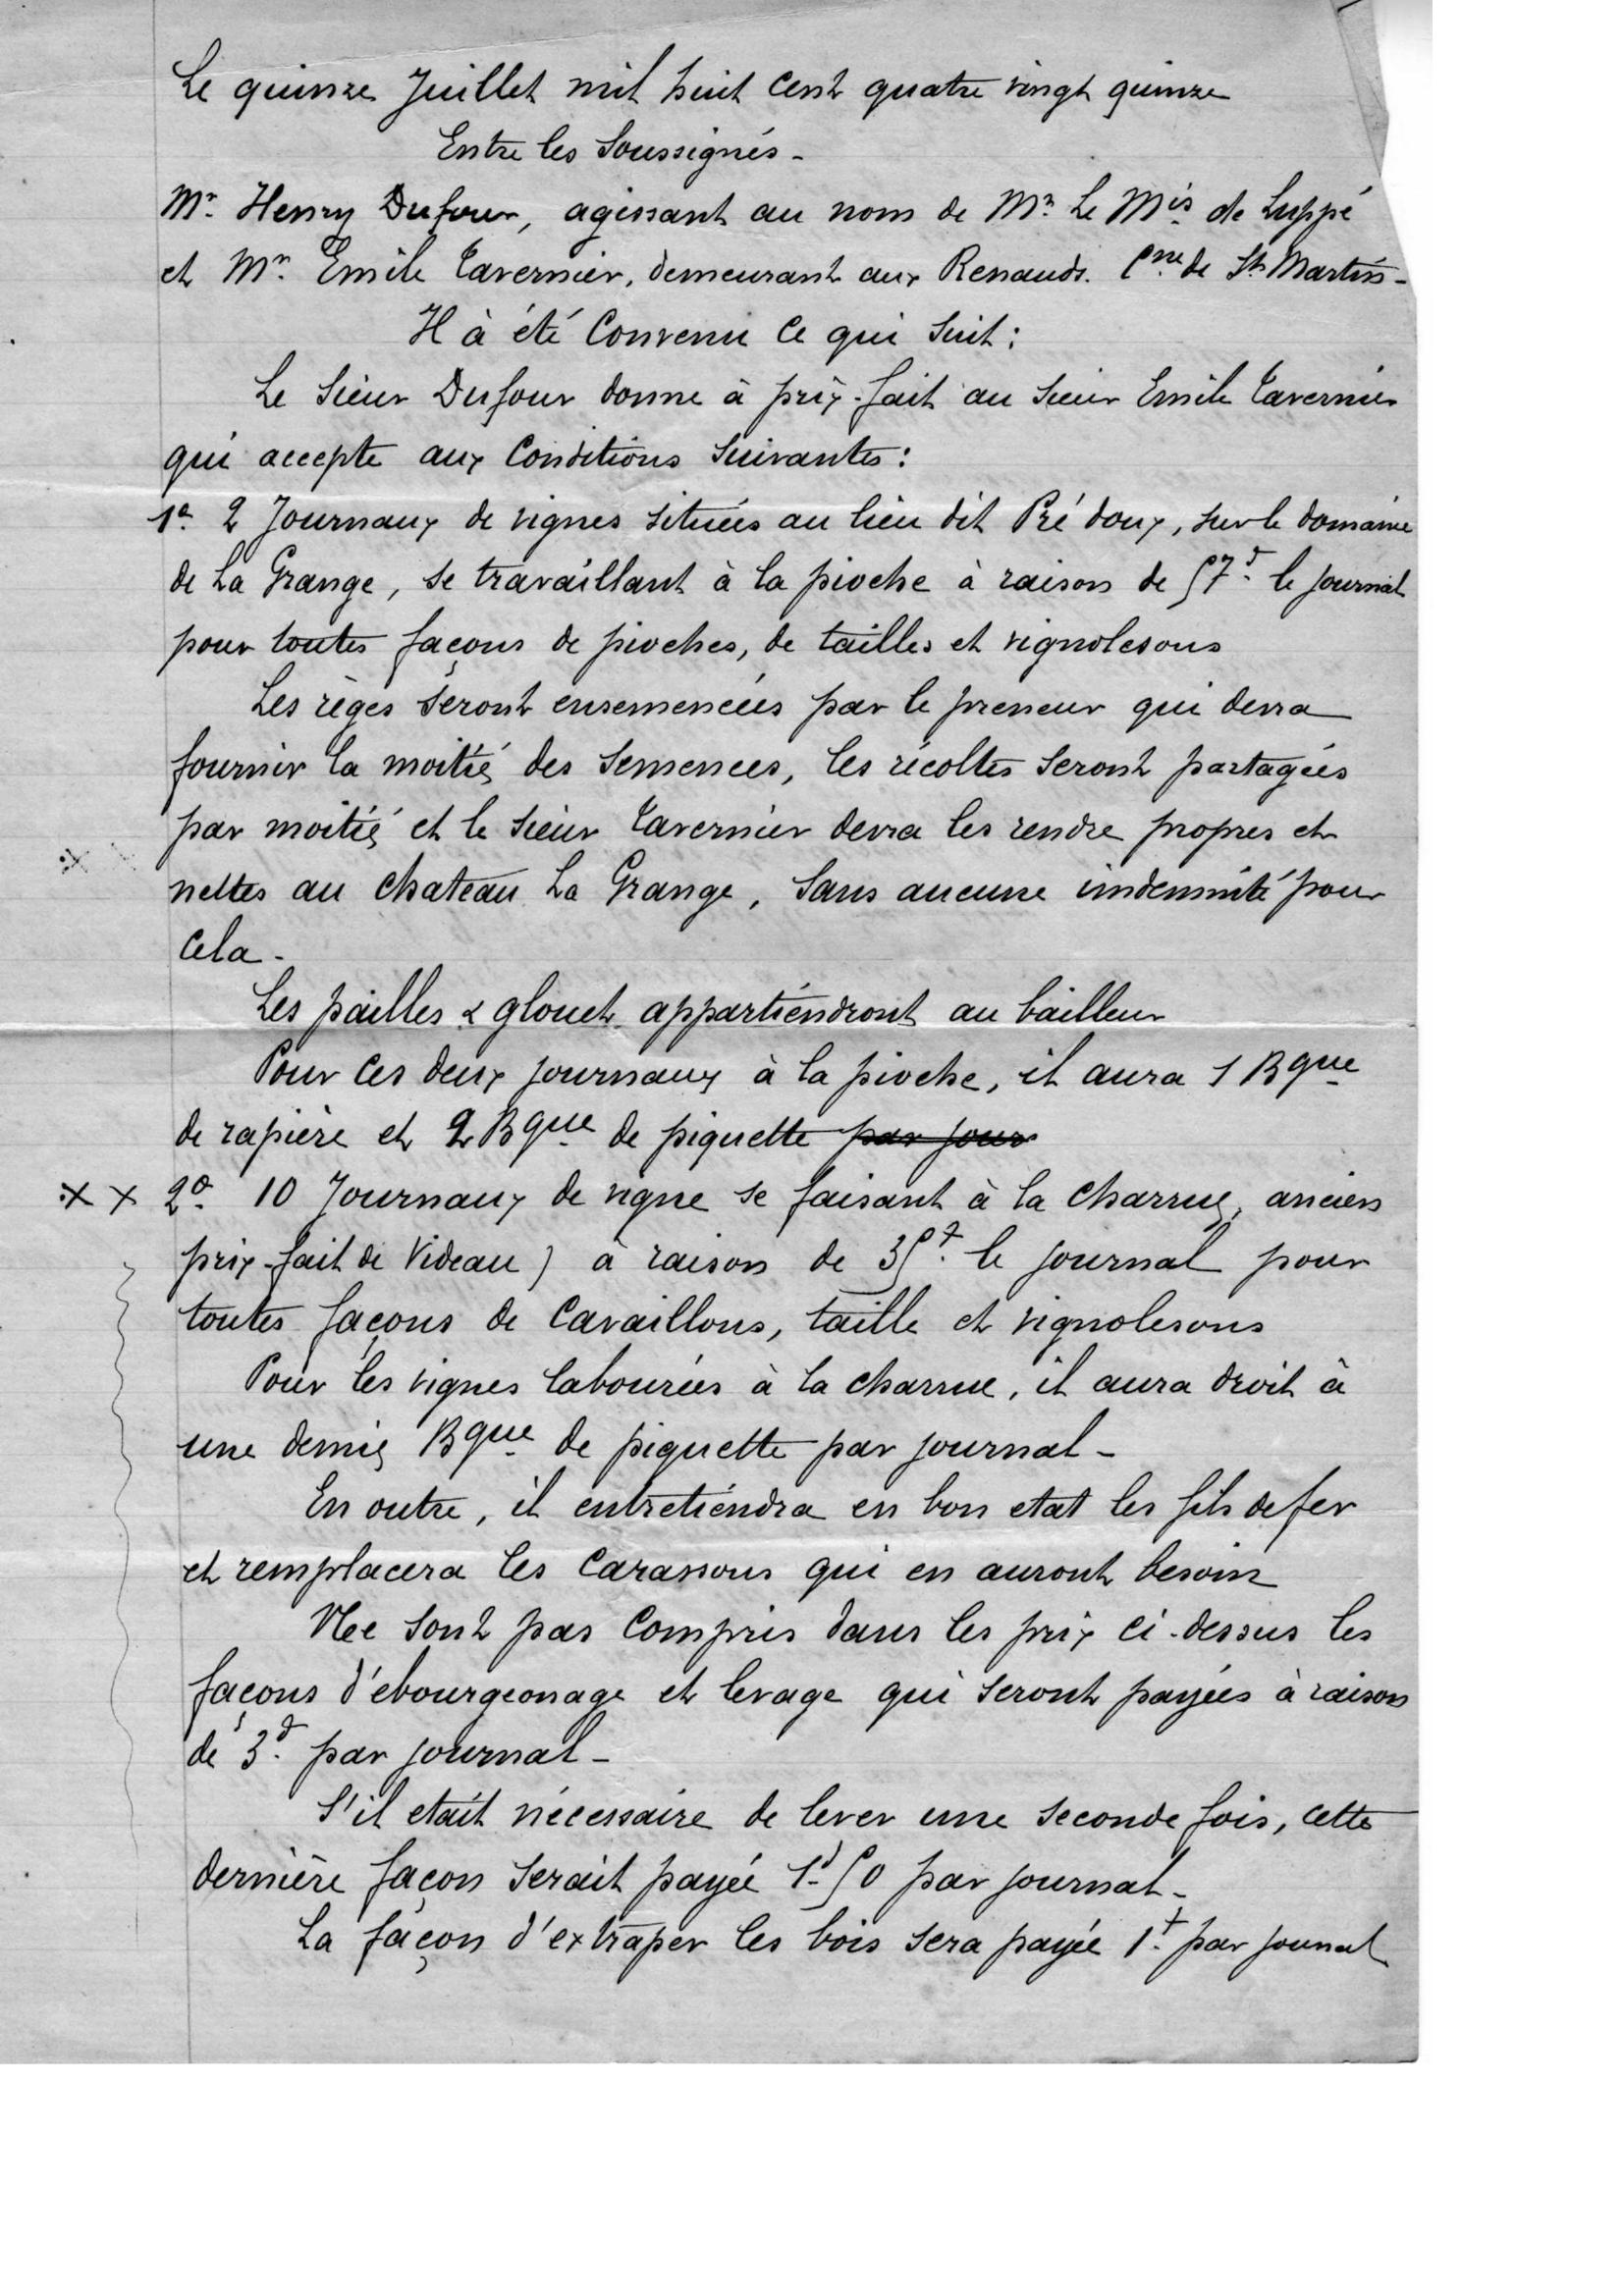 Le quinze Juillet mil huit cent quatre vingt quinze
Entre les Soussignés -
Mr. Henry Dufour, agissant au nom de Mr. Le Mis de Luppé
et Mr. Emile Tavernier, demeurant aux Renauds. Cne de St Martin -
Il à été Convenu Ce qui Suit :
Le Sieur Dufour donne à prix-fait au Sieur Emile Tavernier
qui accepte aux Conditions Suivantes :
1o. 2 Journaux de vignes situées au lieu dit Pré doux, sur le domaine
de La Grange, se travaillant à la pioche à raison de 57f. le journal
pour toutes façons de pioches, de tailles et vignolesons
Les règes seront ensemencées par le preneur qui devra
fournir la moitié des Semences, les récoltes seront partagées
par moitié et le Sieur Tavernier devra les rendre propres et
nettes au Chateau La Grange, Sans aucune indemnité pour
Cela -
Les pailles & glouch appartiendront au bailleur
Pour Ces deux journaux à la pioche, il aura 1 Bque
de rapière et 2 Bque de piquette par jour
x x 2o. 10 Journaux de vigne se faisant à la Charrue, ancien
prix-fait de Videau) à raison de 35f. le journal pour
toutes façons de Cavaillons, taille et vignolesons
Pour les vignes labourées à la charrue, il aura droit à
une demie Bque de piquette par journal -
En outre, il entretiendra en bon etat les fils de fer
et remplacera les Carassons qui en auront besoin
Ne sont pas Compris dans les prix Ci-dessus les
façons d'ebourgeonage et levage qui seront payées à raison
de 3f. par journal -
S'il etait nécessaire de lever une seconde fois, cette
dernière façon serait payée 1f 50 par journal -
La façon d'extraper les bois sera payée 1f. par journal